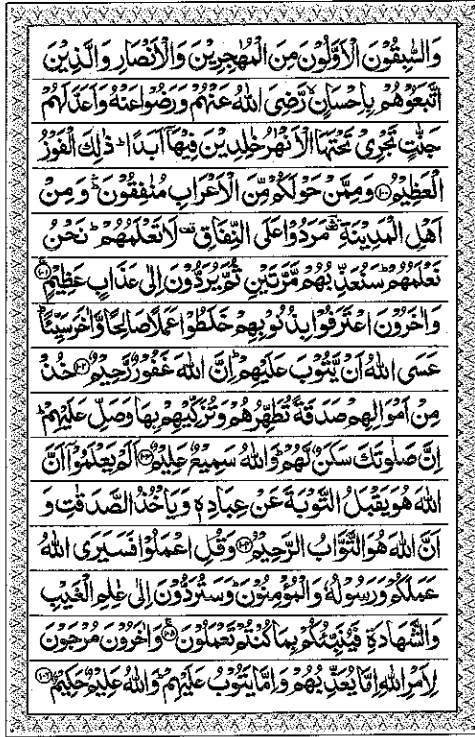 وَالسّٰبِقُوْنَ الْاَوَّلُوْنَ مِنَ الْمُهٰجِرِيْنَ وَالْاَنْصَارِ وَالَّذِيْنَ
اتَّبَعُوْهُمْ بِاِحْسَانٍ ۙ رَّضِيَ اللّٰهُ عَنْهُمْ وَرَضُوْا عَنْهُ وَاَعَدَّ لَهُمْ
جَنّٰتٍ تَجْرِيْ تَحْتَهَا الْاَنْهٰرُ خٰلِدِيْنَ فِيْهَاۤ اَبَدًا ؕ ذٰلِكَ الْفَوْزُ
الْعَظِيْمُ ﴿۱۰۰﴾ وَمِمَّنْ حَوْلَكُمْ مِّنَ الْاَعْرَابِ مُنٰفِقُوْنَ ۛؕ وَمِنْ
اَهْلِ الْمَدِيْنَةِ ۛؔ مَرَدُوْا عَلَى النِّفَاقِ ۫ لَا تَعْلَمُهُمْ ؕ نَحْنُ
نَعْلَمُهُمْ ؕ سَنُعَذِّبُهُمْ مَّرَّتَيْنِ ثُمَّ يُرَدُّوْنَ اِلٰى عَذَابٍ عَظِيْمٍ ﴿۱۰۱﴾
وَاٰخَرُوْنَ اعْتَرَفُوْا بِذُنُوْبِهِمْ خَلَطُوْا عَمَلًا صَالِحًا وَّاٰخَرَ سَيِّئًا ؕ
عَسَى اللّٰهُ اَنْ يَّتُوْبَ عَلَيْهِمْ ؕ اِنَّ اللّٰهَ غَفُوْرٌ رَّحِيْمٌ ﴿۱۰۲﴾ خُذْ
مِنْ اَمْوَالِهِمْ صَدَقَةً تُطَهِّرُهُمْ وَتُزَكِّيْهِمْ بِهَا وَصَلِّ عَلَيْهِمْ ؕ
اِنَّ صَلٰوتَكَ سَكَنٌ لَّهُمْ ؕ وَاللّٰهُ سَمِيْعٌ عَلِيْمٌ ﴿۱۰۳﴾ اَلَمْ يَعْلَمُوْۤا اَنَّ
اللّٰهَ هُوَ يَقْبَلُ التَّوْبَةَ عَنْ عِبَادِهٖ وَيَاْخُذُ الصَّدَقٰتِ وَ
اَنَّ اللّٰهَ هُوَ التَّوَّابُ الرَّحِيْمُ ﴿۱۰۴﴾ وَقُلِ اعْمَلُوْا فَسَيَرَى اللّٰهُ
عَمَلَكُمْ وَرَسُوْلُهٗ وَالْمُؤْمِنُوْنَ ؕ وَسَتُرَدُّوْنَ اِلٰى عٰلِمِ الْغَيْبِ
وَالشَّهَادَةِ فَيُنَبِّئُكُمْ بِمَا كُنْتُمْ تَعْمَلُوْنَ ﴿۱۰۵﴾ وَاٰخَرُوْنَ مُرْجَوْنَ
لِاَمْرِ اللّٰهِ اِمَّا يُعَذِّبُهُمْ وَاِمَّا يَتُوْبُ عَلَيْهِمْ ؕ وَاللّٰهُ عَلِيْمٌ حَكِيْمٌ ﴿۱۰۶﴾